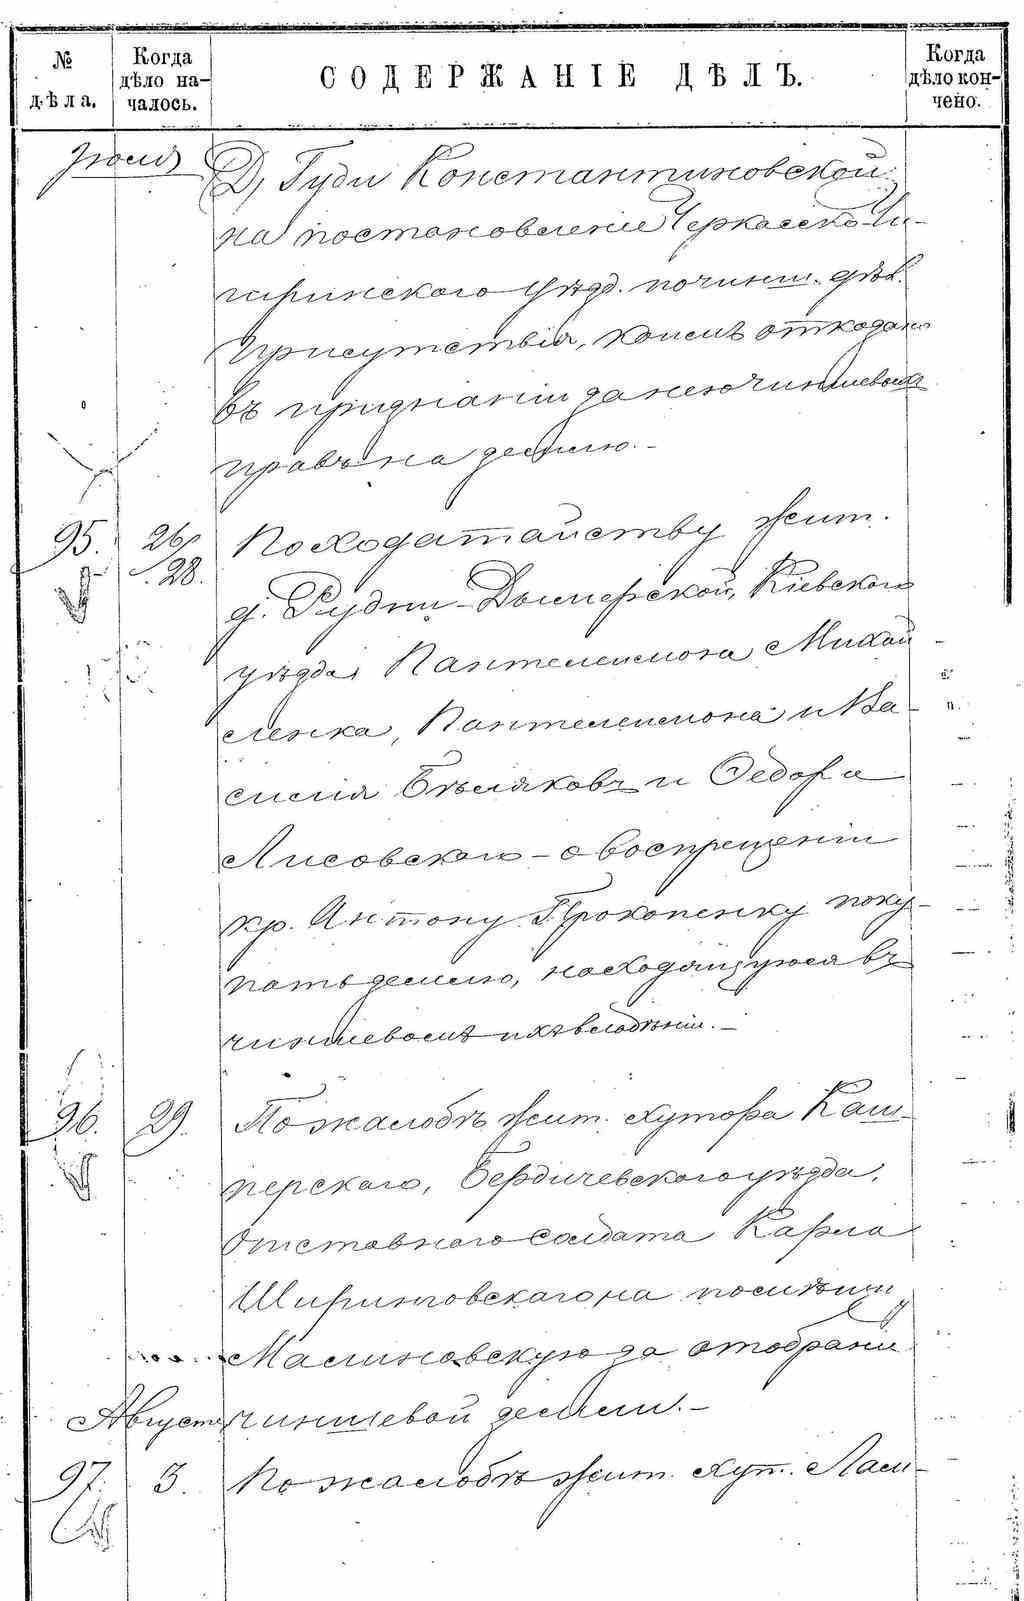 № дѣла.
Когда дѣло началось.
СОДЕРЖАНІЕ ДѢЛЪ.
Когда дѣло кончено.
Д, Гуди Константиновской
на постановленіе Черкасско-Чи-
гиринскаго Уѣзд. по чинш. дѣл.
Присутствія, коимъ отказано
въ признаніи за нею чиншевыхъ
правъ на землю.-
95. 26/28. По ходатайству жит.
д. Рудни-Дымерской, Кіевскаго
уѣзда, Пантелеимона Михай
ленка, Пантелеимона и Ва-
силія Бѣляковъ и Ѳедора
Лисовского - о воспрещеніи
кр. Антону Прокопенку поку-
пать землю, находящуюся въ
чиншевомъ ихъ владѣніи.-
96. 29. По жалобѣ жит. хутора Каш-
перскаго, Бердичевскаго уѣзда,
Отставнаго солдата Карла
на помѣщицу
Малиновскую за отобраніе
Августа чиншевой земли.-
97. 3. По жалобѣ жит. хут.